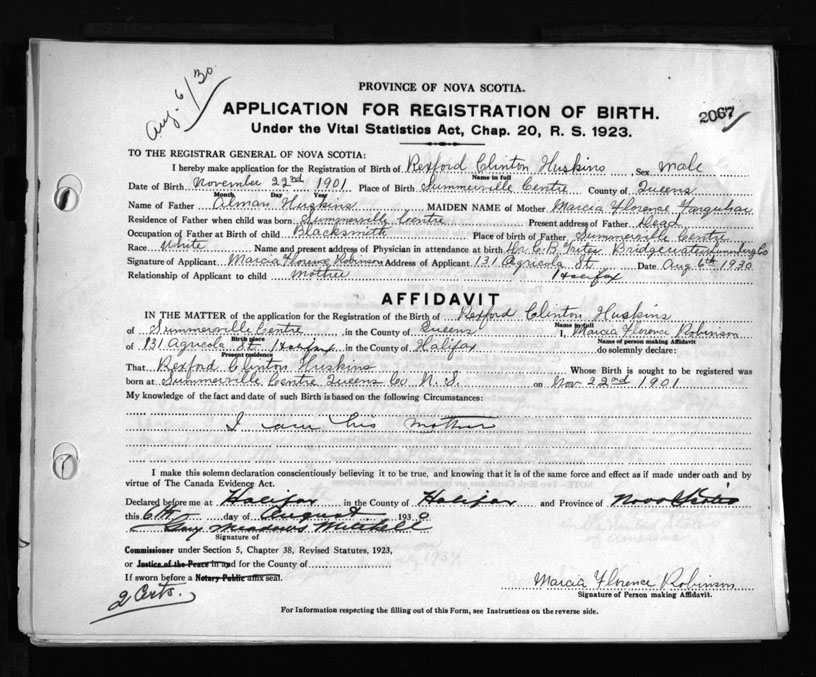 Aug. 6/30
PROVINCE OF NOVA SCOTIA.
APPLICATION FOR REGISTRATION OF BIRTH.
2067
Under the Vital Statistics Act, Chap. 20, R. S. 1923.
TO THE REGISTRAR GENERAL OF NOVA SCOTIA:
I hereby make application for the Registration of Birth of Rexford Clinton Huskins, Sex male
Name in full
Date of Birth November 22nd 1901 Place of Birth Summerville Centre County of Queens
Month Day Year
Name of Father Huskins MAIDEN NAME of Mother Marcia Florence
Residence of Father when child was born Summerville Centre Present address of Father Dead
Occupation of Father at Birth of child Blacksmith Place of birth of Father Summerville Centre
Race White Name and present address of Physician in attendance at birth C. B. Bridgewater Co
Signature of Applicant Marcia Florence Robinson Address of Applicant 131 Agricola St Date Aug 6th 1930
Relationship of Applicant to child mother Halifax
AFFIDAVIT
IN THE MATTER of the application for the Registration of the Birth of Rexford Clinton Huskins
Name in full
of Summerville Centre, in the County of Queens I, Marcia Florence Robinson
Birth place Name of person making Affidavit
of 131 Agricola St Halifax in the County of Halifax do solemnly declare:
Present residence
That Rexford Clinton Huskins Whose Birth is sought to be registered was
born at Summerville Centre Queens Co N. S. on Nov 22nd 1901
My knowledge of the fact and date of such Birth is based on the following Circumstances:
I am his mother
I make this solemn declaration conscientiously believing it to be true, and knowing that it is of the same force and effect as if made under oath and by
virtue of The Canada Evidence Act.
Declared before me at Halifax in the County of Halifax and Province of Nova Scotia
this 6th day of August 1930
Meadows Mitchell
Signature of
Commissioner under Section 5, Chapter 38, Revised Statutes, 1923,
or Justice of the Peace in and for the County of
If sworn before a Notary Public affix seal.
Marcia Florence Robinson
Signature of Person making Affidavit.
2 Certs.
For Information respecting the filling out of this Form, see Instructions on the reverse side.